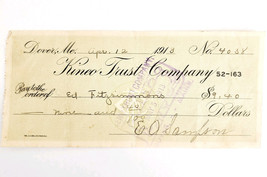 Dover, Me. Apr. 12 1913 No. 4058
Kineo Trust Company 52-163
Pay to the order of Ed Fitzsimmons $9.40
Nine and 40/100 Dollars
E O Sampson